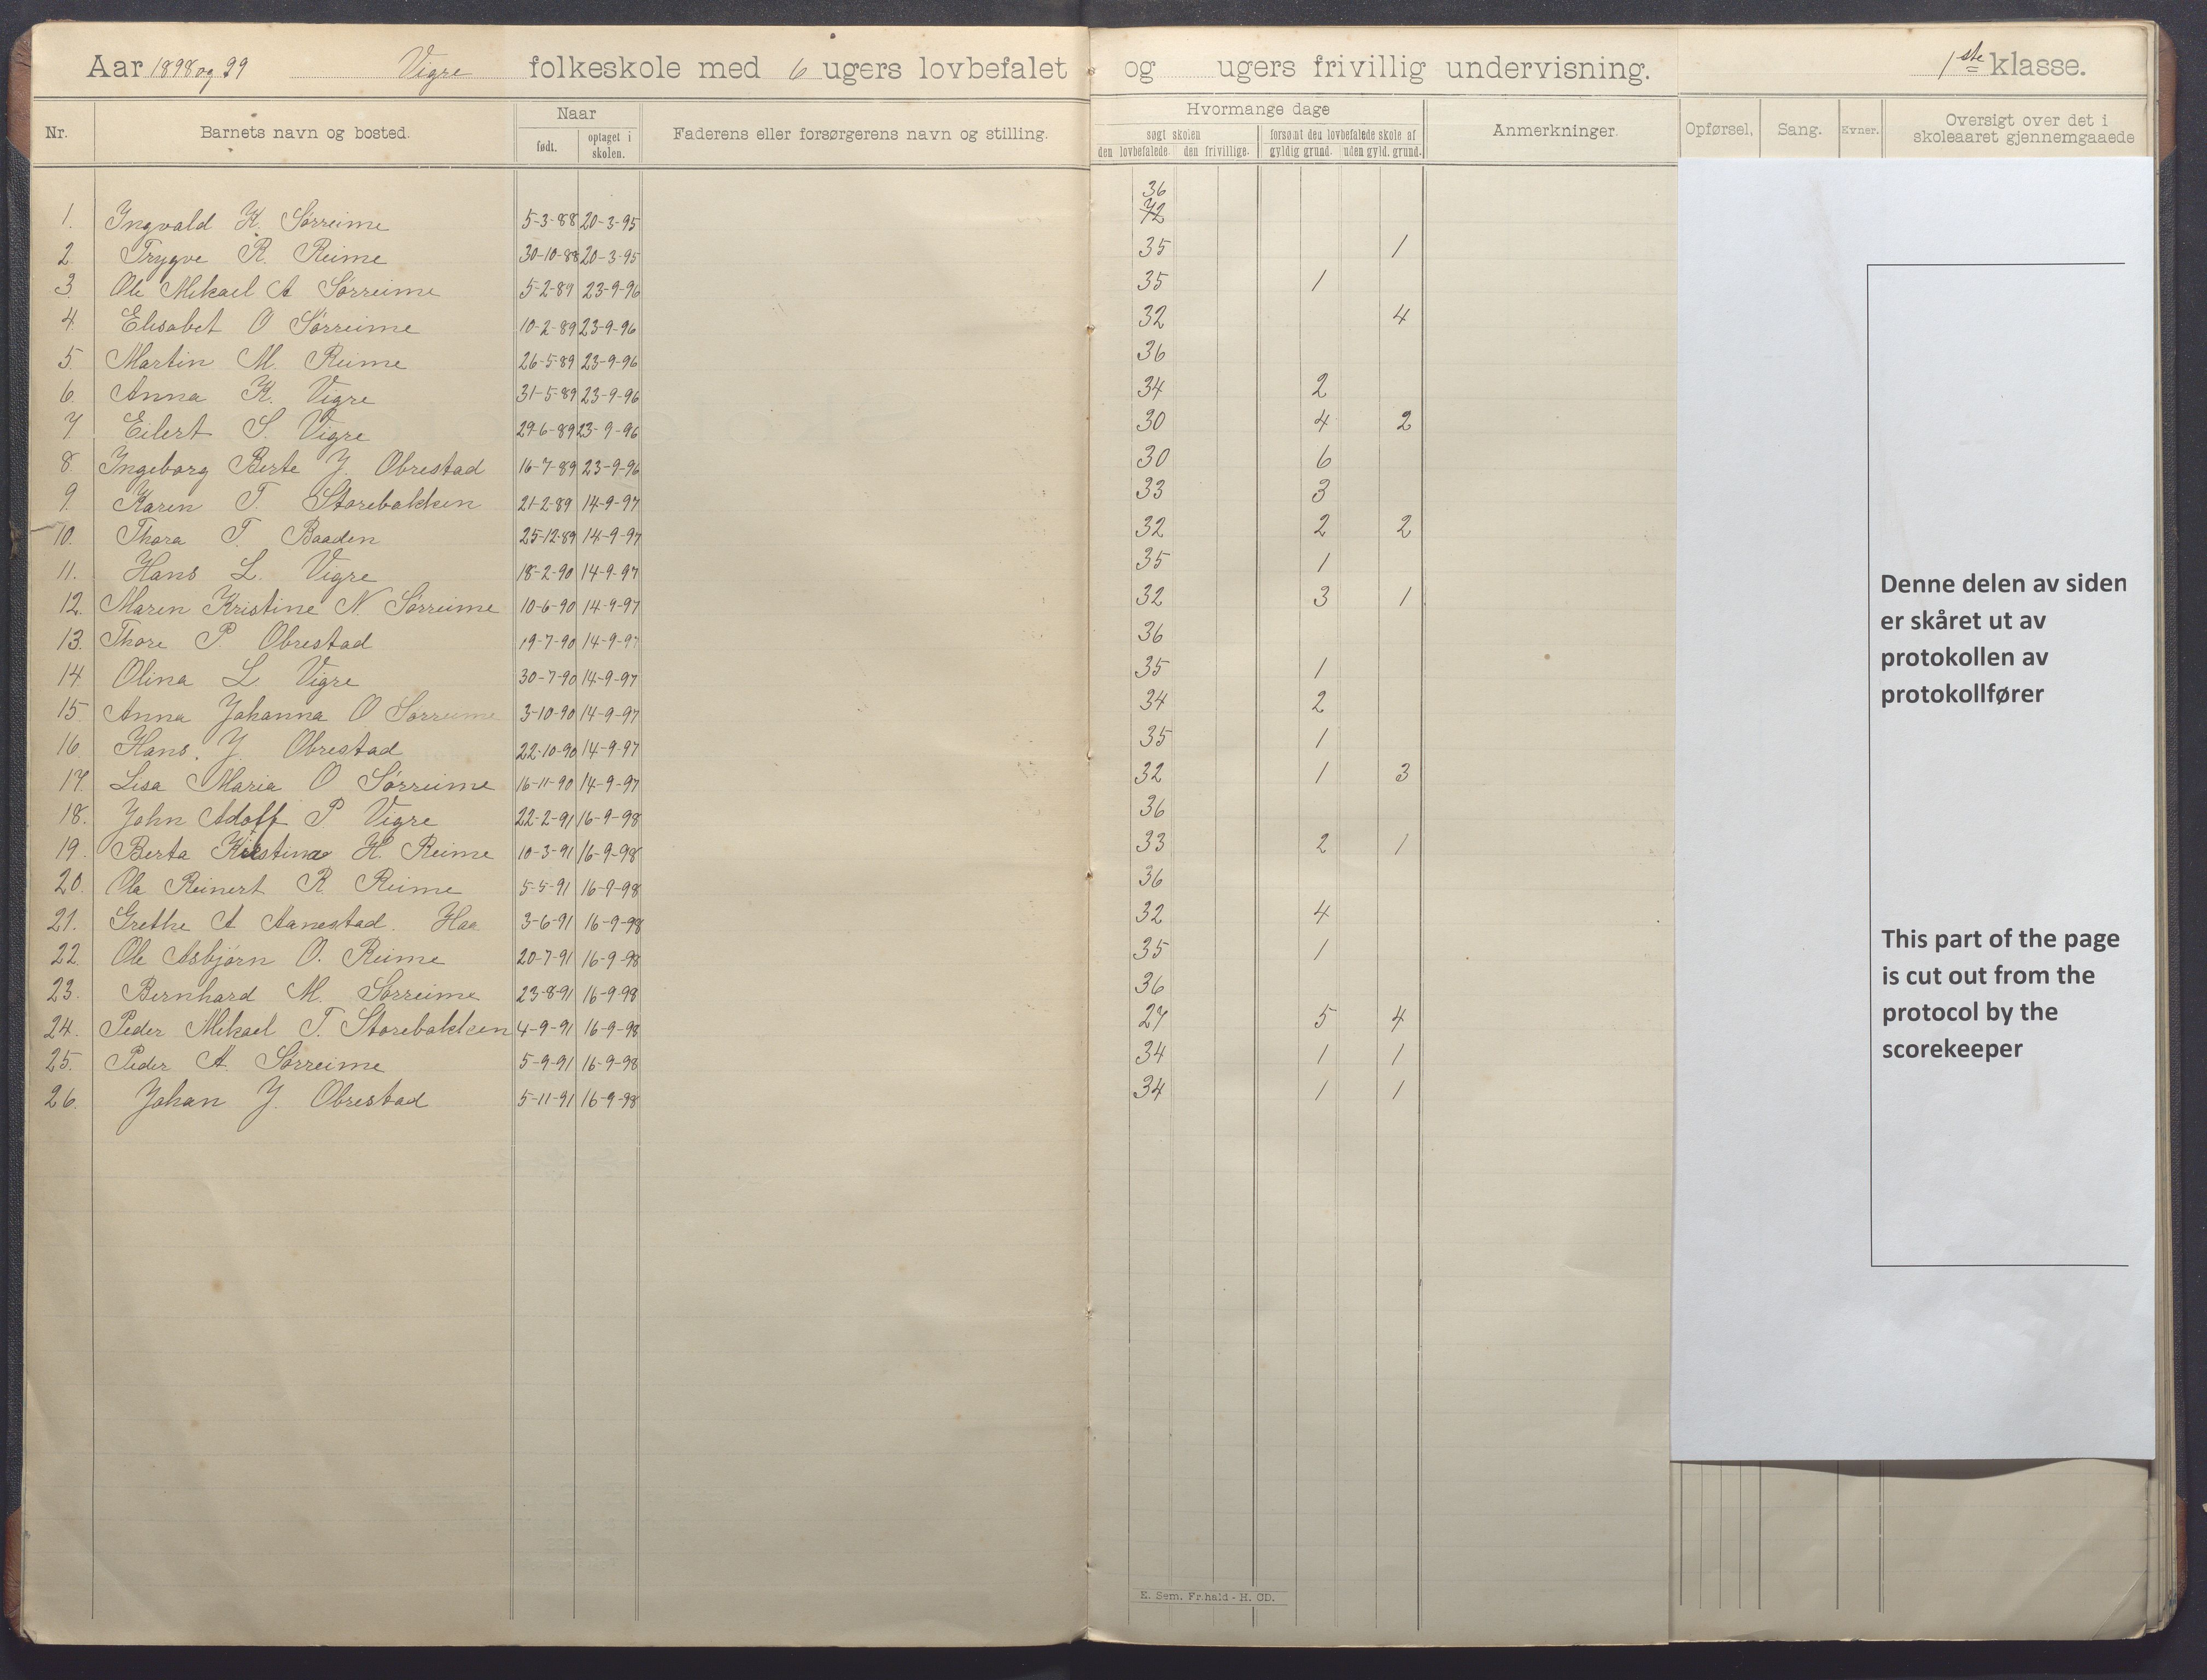 Aar 1898 og 99 Vigre folkeskole med 6 ugers lovbefalet og ugers frivillig undervisning. 1ste klasse.
Nr. Barnets navn og bosted. Naar født. optaget i skolen. Faderens eller forsørgerens navn og stilling. Hvormange dage søgt skolen den lovbefalede. den frivillige. forsømt den lovbefalede skole af gyldig grund. uden gyld. grund. Anmerkninger. Opførsel. Sang. Evner. Oversigt over det i skoleaaret gjennemgaaede
36
1. Ingvald K. Sørreime 5-3-88 20-3-95 72
2 Trygve R. Reime 30-10-88 20-3-95 35 1
3. Ole Mikael A Sørreime 5-2-89 23-9-96 35 1
4. Elisabet O Sørreime 10-2-89 23-9-96 32 4
5. Martin M. Reime 26-5-89 23-9-96 36
6. Anna K. Vigre 31-5-89 23-9-96 34 2
7. Eilert S. Vigre 29-6-89 23-9-96 30 4 2
8. Ingeborg Berte J. Obrestad 16-7-89 23-9-96 30 6
9. Karen T. Storebakken 21-2-89 14-9-97 33 3
10. Thora T. Baaden 25-12-89 14-9-97 32 2 2
11. Hans L. Vigre 18-2-90 14-9-97 35 1
12. Maren Kristine N. Sørreime 10-6-90 14-9-97 32 3 1
13. Thore P. Obrestad 19-7-90 14-9-97 36
14. Olina L Vigre 30-7-90 14-9-97 35 1
15. Anna Johanna O Sørreime 3-10-90 14-9-97 34 2
16 Hans. J. Obrestad 22-10-90 14-9-97 35 1
17. Lisa Maria O Sørreime 16-11-90 14-9-97 32 1 3
18. John Adolf P. Vigre 22-2-91 16-9-98 36
19. Berta Kristina H. Reime 10-3-91 16-9-98 33 2 1
20. Ola Reinert R. Reime 5-5-91 16-9-98 36
21. Grethe A Aanestad. Haa 3-6-91 16-9-98 32 4
22. Ole Asbjørn O. Reime 20-7-91 16-9-98 35 1
23. Bernhard M. Sørreime 23-8-91 16-9-98 36
24. Peder Mikael T. Storebakken 4-9-91 16-9-98 27 5 4
25. Peder A. Sørreime 5-9-91 16-9-98 34 1 1
26. Johan J. Obrestad 5-11-91 16-9-98 34 1 1
E. Sem. Fr.hald - H. OD.
Denne delen av siden
er skåret ut av
protokollen av
protokollfører
This part of the page
is cut out from the
protocol by the
scorekeeper